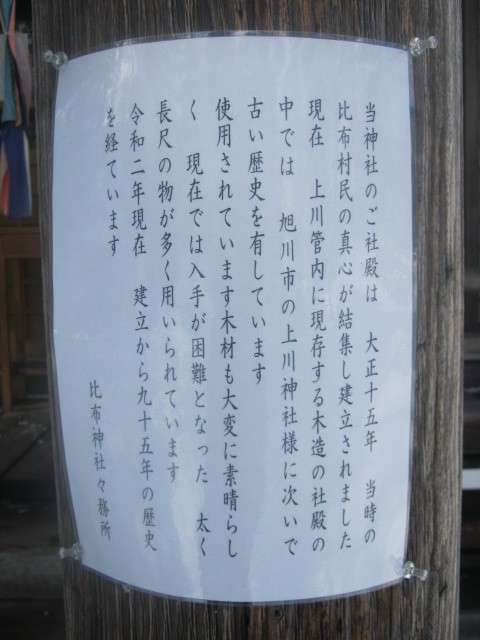 当神社のご社殿は　大正十五年　当時の
比布村民の真心が結集し建立されました
現在　上川管内に現存する木造の社殿の
中では　旭川市の上川神社様に次いで
古い歴史を有しています
使用されています木材も大変に素晴らし
く　現在では入手が困難となった　太く
長尺の物が多く用いられています
令和二年現在　建立から九十五年の歴史
を経ています
比布神社々務所